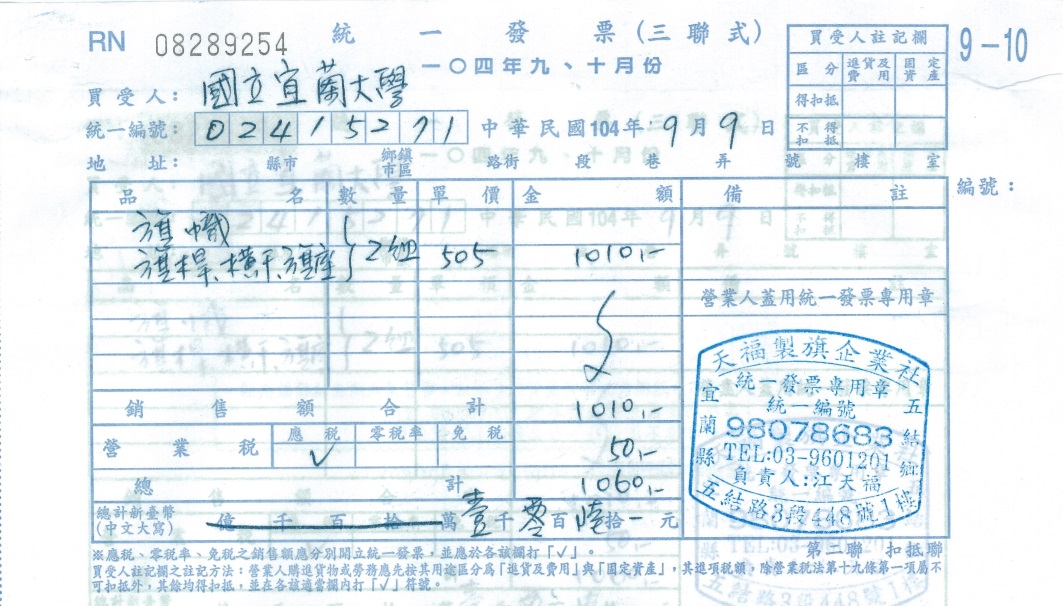 RN 08289254 統一發票(三聯式)
一〇四年九、十月份
9-10
買受人註記欄
區分 進貨及費用 固定資產
得扣抵
不得扣抵
買受人: 國立宜蘭大學
統一編號: 02415271 中華民國104年9月9日
地址: 縣市 鄉鎮市區 路街 段 巷 弄 號 樓 室
品名 數量 單價 金額 備註 編號:
旗幟
旗桿、橫干、旗座 2組 505 1010,-
營業人蓋用統一發票專用章
銷售額合計 1010,-
營業稅 應稅 零稅率 免稅
√ 50,-
總計 1060,-
總計新臺幣(中文大寫) 億千百拾萬壹千零百陸拾一元
天福製旗企業社
統一發票專用章
統一編號
98078683
TEL:03-9601201
負責人:江天福
宜蘭縣五結鄉
五結路3段448號1樓
第二聯 扣抵聯
※應稅、零稅率、免稅之銷售額應分別開立統一發票,並應於各該欄打「√」。
買受人註記欄之註記方法:營業人購進貨物或勞務應先按其用途區分為「進貨及費用」與「固定資產」,其進項稅額,除營業稅法第十九條第一項屬不
可扣抵外,其餘均得扣抵,並在各該適當欄內打「√」符號。